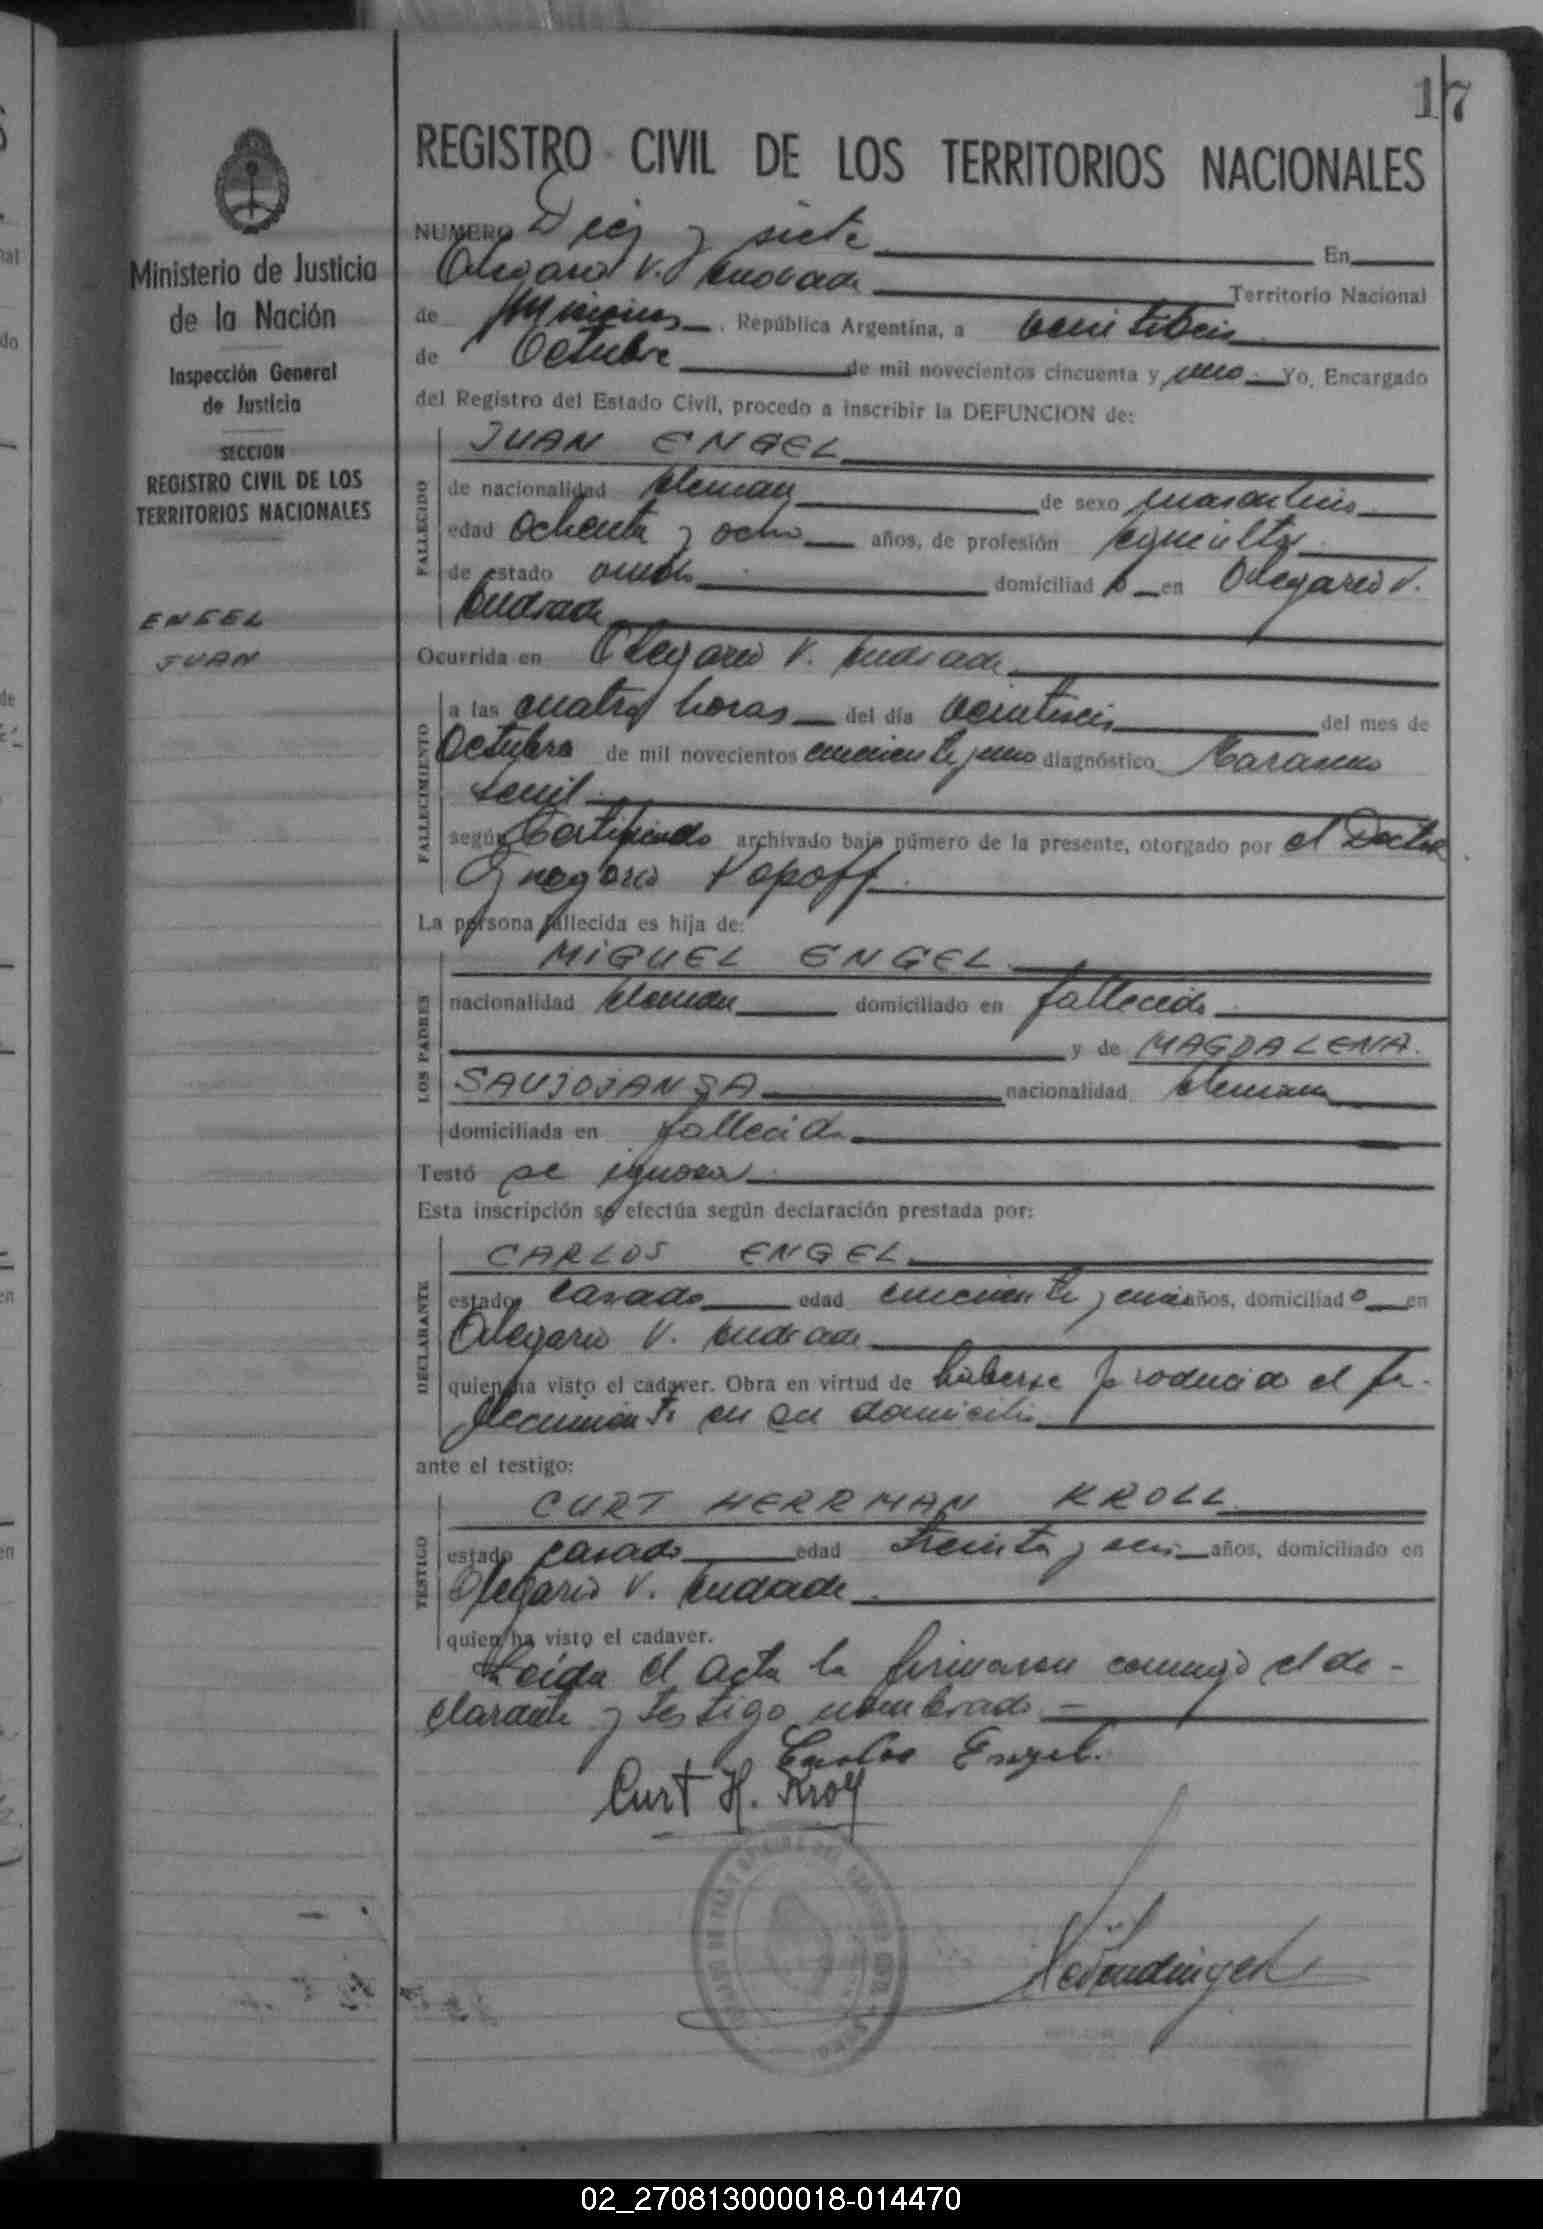 17
REGISTRO CIVIL DE LOS TERRITORIOS NACIONALES
Ministerio de Justicia
de la Nación
Inspección General
de Justicia
SECCION
REGISTRO CIVIL DE LOS
TERRITORIOS NACIONALES
ENGEL
JUAN
NUMERO Diez y siete En
Olegario V. Andrade Territorio Nacional
de Misiones, República Argentina, a veintiseis
de Octubre de mil novecientos cincuenta y uno. Yo, Encargado
del Registro del Estado Civil, procedo a inscribir la DEFUNCION de:
FALLECIDO
JUAN ENGEL
de nacionalidad Aleman de sexo masculino
edad ochenta y ocho años, de profesión agricultor
de estado viudo domiciliado en Olegario V.
Andrade
Ocurrida en Olegario V. Andrade
FALLECIMIENTO
a las cuatro horas del día veintiseis del mes de
Octubre de mil novecientos cincuenta y uno diagnóstico Marasmo
senil
según Certificado archivado bajo número de la presente, otorgado por el Doctor
Gregorio Popoff
La persona fallecida es hija de:
LOS PADRES
MIGUEL ENGEL
nacionalidad Aleman domiciliado en fallecido
y de MAGDALENA
SAUJOJANSA nacionalidad Alemana
domiciliada en fallecida
Testó se ignora
Esta inscripción se efectúa según declaración prestada por:
DECLARANTE
CARLOS ENGEL
estado casado edad cincuenta y años, domiciliado en
Olegario V. Andrade
quien ha visto el cadaver. Obra en virtud de haberse producido el fa-
llecimiento en su domicilio
ante el testigo:
TESTIGO
CURT HERRMAN KROLL
estado casado edad treinta y seis años, domiciliado en
Olegario V. Andrade
quien ha visto el cadaver.
Leida el acta la firmaron conmigo el de-
clarante y testigo nombrado =
Carlos Engel.
Curt H. Kroll
02_270813000018-014470